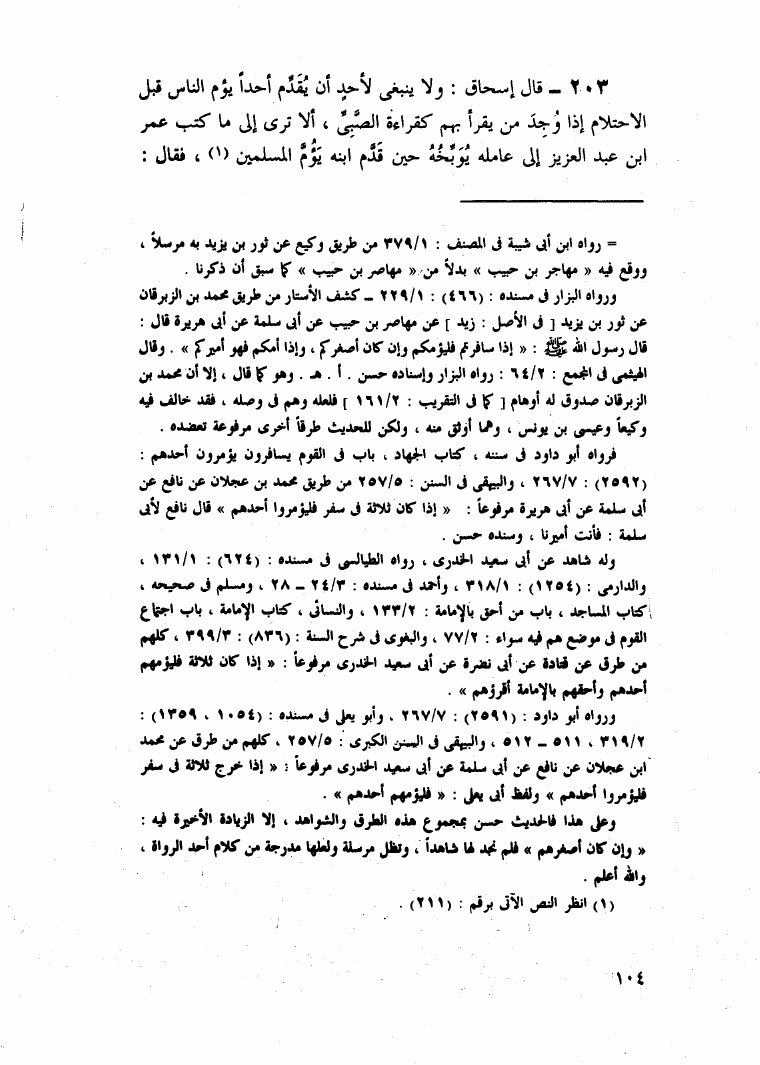 ٢٠٣ – قال إسحاق : ولا ينبغى لأحدٍ أن يُقَدِّم أحداً يؤم الناس قبل
الاحتلام إذا وُجِدَ من يقرأ بهم كقراءة الصَّبِىِّ ، ألا ترى إلى ما كتب عمر
ابن عبد العزيز إلى عامله يُوَبِّخُهُ حين قَدَّم ابنه يَؤُمُّ المسلمين (١) ، فقال :
= رواه ابن أبى شيبة فى المصنف : ٣٧٩/١ من طريق وكيع عن ثور بن يزيد به مرسلاً ،
ووقع فيه « مهاجر بن حبيب » بدلاً من « مهاصر بن حبيب » كما سبق أن ذكرنا .
ورواه البزار فى مسنده : (٤٦٦) : ٢٢٩/١ – كشف الأستار من طريق محمد بن الزبرقان
عن ثور بن يزيد [ فى الأصل : زيد ] عن مهاصر بن حبيب عن أبى سلمة عن أبى هريرة قال :
قال رسول الله ﷺ : « إذا سافرتم فليؤمكم وإن كان أصغركم ، وإذا أمكم فهو أميركم » . وقال
الهيثمى فى المجمع : ٦٤/٢ : رواه البزار وإسناده حسن . أ . هـ . وهو كما قال ، إلا أن محمد بن
الزبرقان صدوق له أوهام [ كما فى التقريب : ١٦١/٢ ] فلعله وهم فى وصله ، فقد خالف فيه
وكيعاً وعيسى بن يونس ، وهما أوثق منه ، ولكن للحديث طرقاً أخرى مرفوعة تعضده .
فرواه أبو داود فى سننه ، كتاب الجهاد ، باب فى القوم يسافرون يؤمرون أحدهم :
(٢٥٩٢) : ٢٦٧/٧ ، والبيهقى فى السنن : ٢٥٧/٥ من طريق محمد بن عجلان عن نافع عن
أبى سلمة عن أبى هريرة مرفوعاً : « إذا كان ثلاثة فى سفر فليؤمروا أحدهم » قال نافع لأبى
سلمة : فأنت أميرنا ، وسنده حسن .
وله شاهد عن أبى سعيد الخدرى ، رواه الطيالسى فى مسنده : (٦٢٤) : ١٣١/١ ،
والدارمى : (١٢٥٤) : ٣١٨/١ ، وأحمد فى مسنده : ٢٤/٣ – ٢٨ ، ومسلم فى صحيحه ،
كتاب المساجد ، باب من أحق بالإمامة : ١٣٣/٢ ، والنسائى ، كتاب الإمامة ، باب اجتماع
القوم فى موضع هم فيه سواء : ٧٧/٢ ، والبغوى فى شرح السنة : (٨٣٦) : ٣٩٩/٣ ، كلهم
من طرق عن قتادة عن أبى نضرة عن أبى سعيد الخدرى مرفوعاً : « إذا كان ثلاثة فليؤمهم
أحدهم وأحقهم بالإمامة أقرؤهم » .
ورواه أبو داود : (٢٥٩١) : ٢٦٧/٧ ، وأبو يعلى فى مسنده : (١٠٥٤ ، ١٣٥٩) :
٣١٩/٢ ، ٥١١ – ٥١٢ ، والبيهقى فى السنن الكبرى : ٢٥٧/٥ ، كلهم من طرق عن محمد
ابن عجلان عن نافع عن أبى سلمة عن أبى سعيد الخدرى مرفوعاً : « إذا خرج ثلاثة فى سفر
فليؤمروا أحدهم » ولفظ أبى يعلى : « فليؤمهم أحدهم » .
وعلى هذا فالحديث حسن بمجموع هذه الطرق والشواهد ، إلا الزيادة الأخيرة فيه :
« وإن كان أصغرهم » فلم نجد لها شاهداً ، وتظل مرسلة ولعلها مدرجة من كلام أحد الرواة ،
والله أعلم .
(١) انظر النص الآتى برقم : (٢١١) .
١٠٤